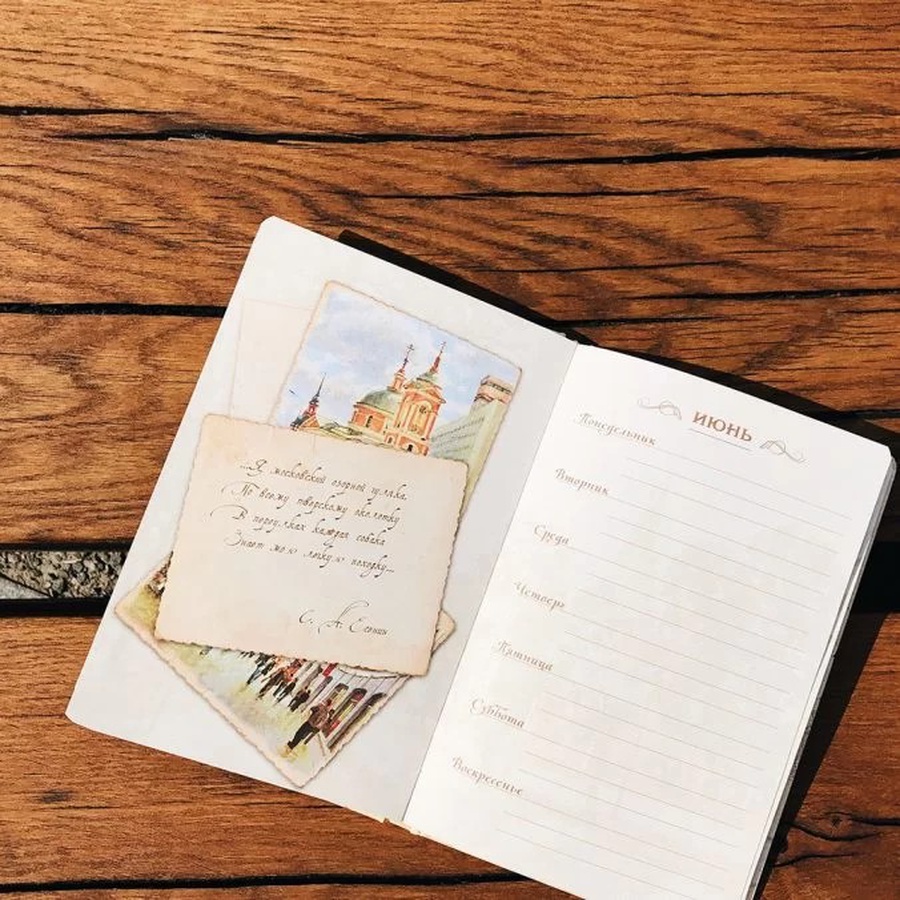 ...Я московский озорной гуляка.
По всему тверскому околотку
В переулках каждая собака
Знает мою легкую походку...
С. А. Есенин
ИЮНЬ
Понедельник
Вторник
Среда
Четверг
Пятница
Суббота
Воскресенье